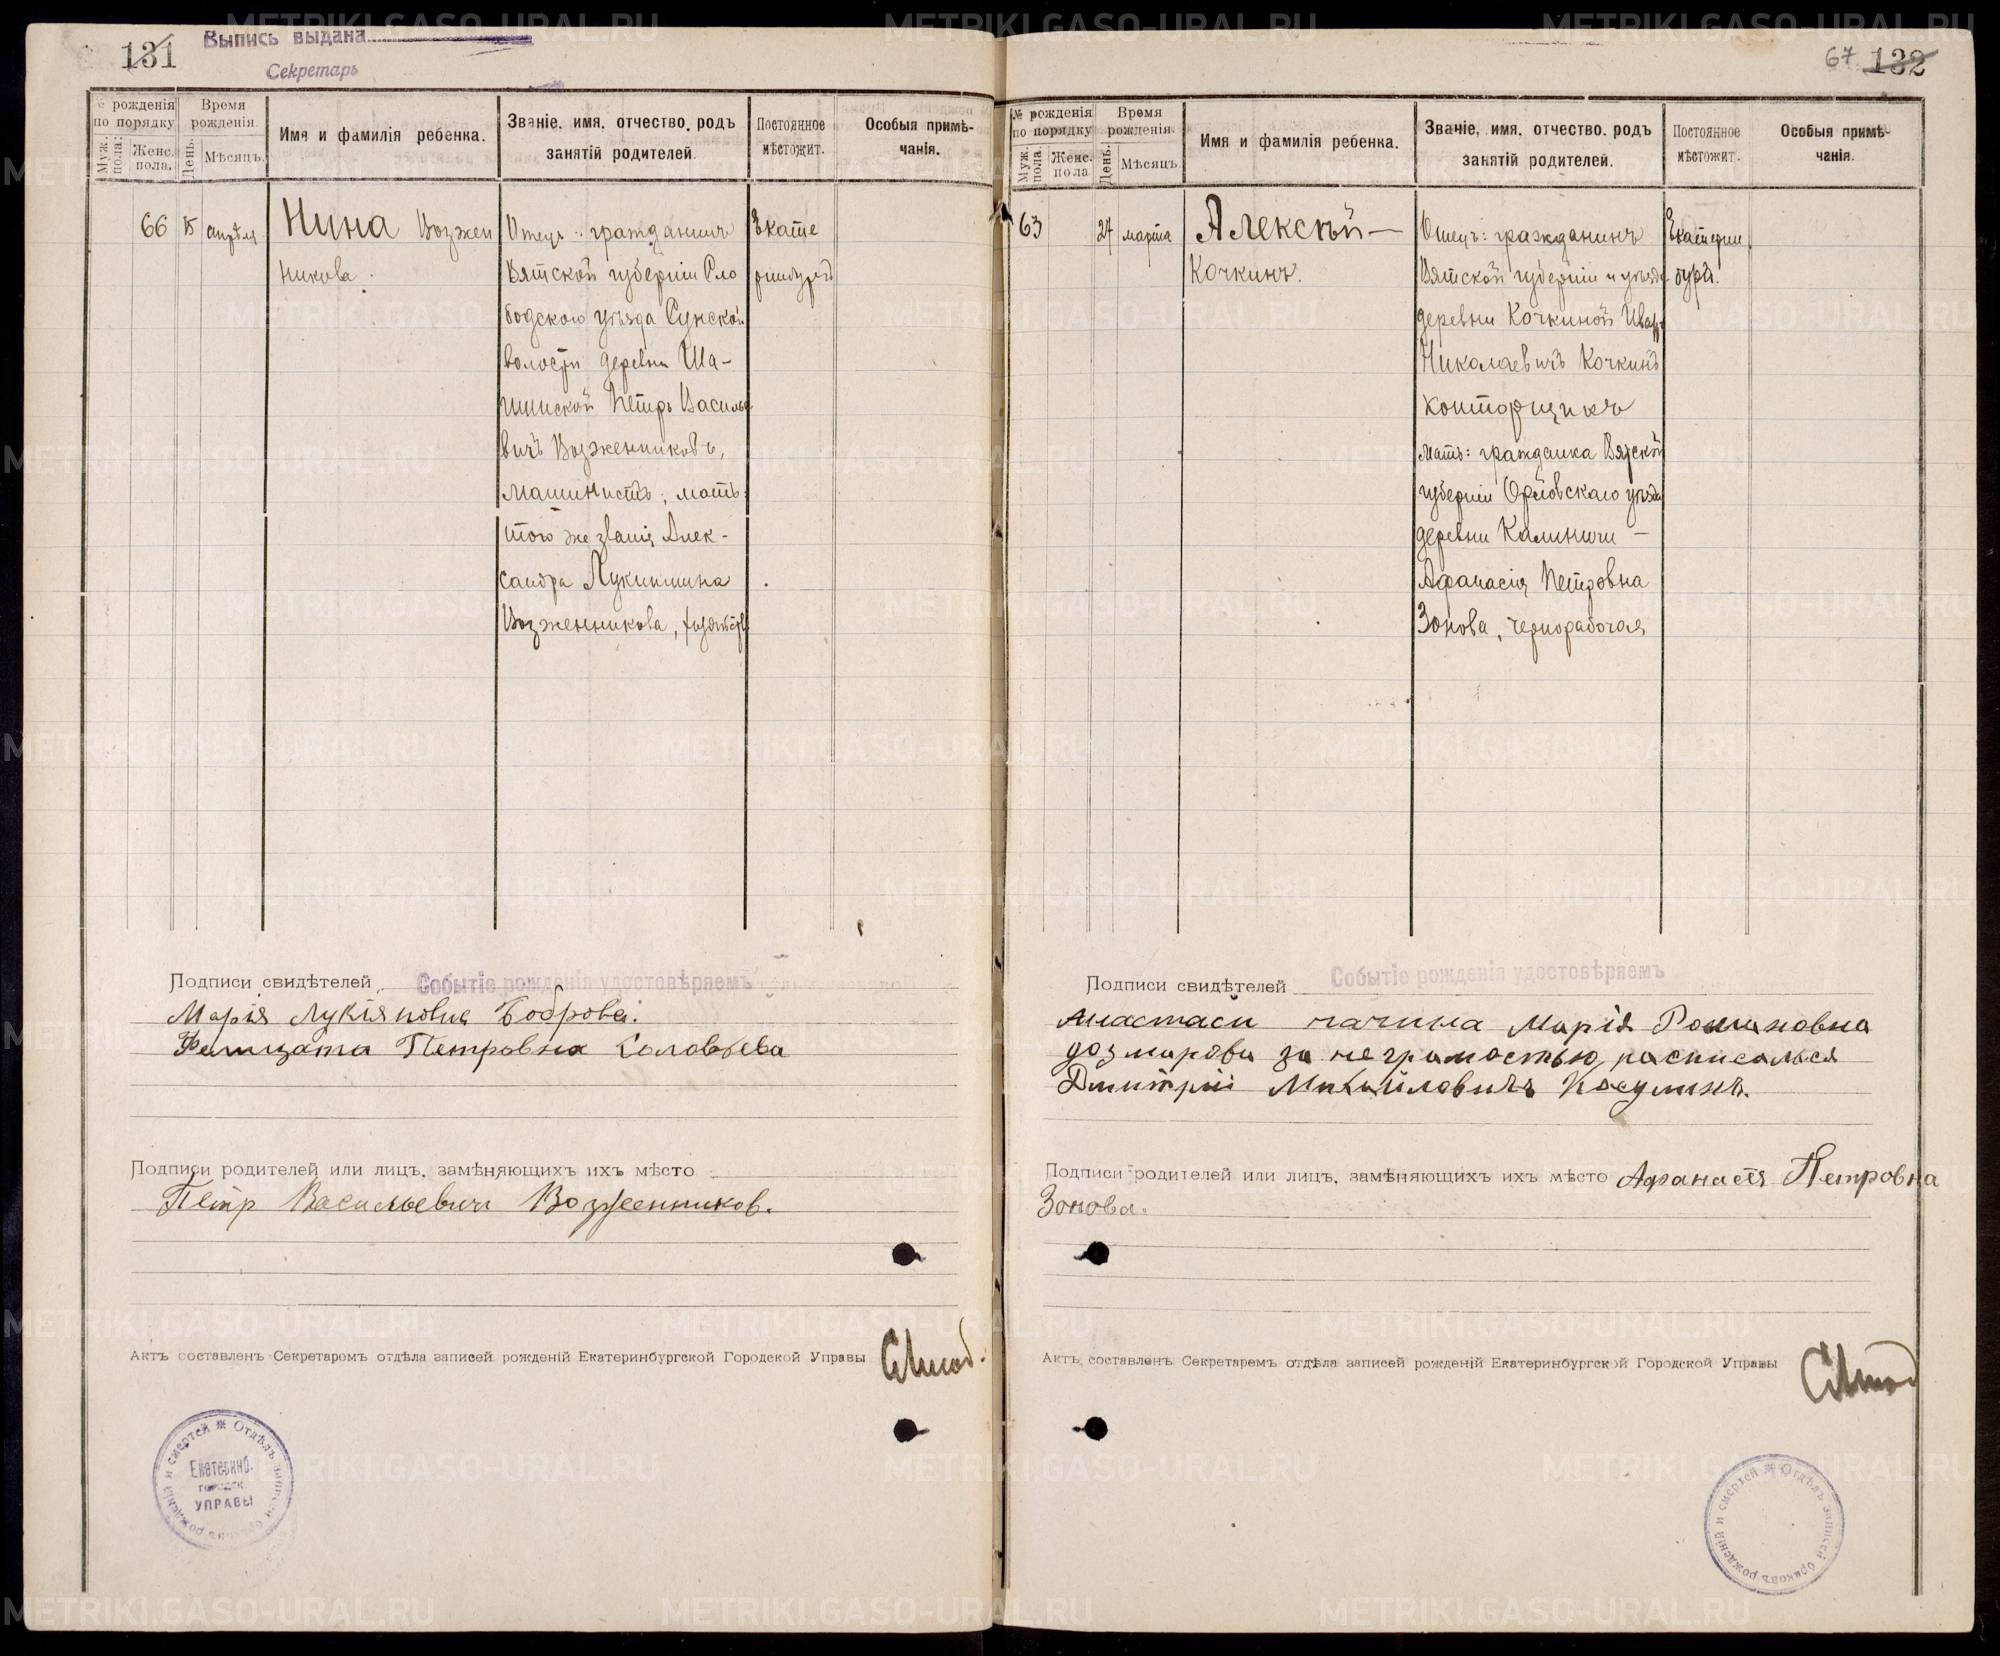 131
Выпись выдана
Секретарь
№ рожденія по порядку
Муж. пола.
Женс. пола.
Время рожденія.
День.
Мѣсяцъ.
Имя и фамилія ребенка.
Званіе, имя, отчество, родъ занятій родителей.
Постоянное мѣстожит.
Особыя примѣчанія.
66
15
апрѣля
Нина Возжен
никова.
Отецъ: гражданинъ
Вятской губерніи Сло
бодского уѣзда Сунской
волости деревни Ша-
Петръ Василье
вичъ Возженниковъ,
машинистъ; мать:
того же званія Алек-
сандра Лукинишна
Возженникова,
Екате
ринбургъ
Подписи свидѣтелей
Событіе рожденія удостовѣряемъ
Марія Лукіяновна Боброва.
Фелицата Петровна Соловьева
Подписи родителей или лицъ, замѣняющихъ ихъ мѣсто
Петр Васильевич Возженников.
Актъ составленъ Секретаромъ отдѣла записей рожденій Екатеринбургской Городской Управы
Отдѣлъ записи браковъ рожденій и смертей
Екатеринб.
городск.
УПРАВЫ
67 132
№ рожденія по порядку
Муж. пола.
Женс. пола
Время рожденія.
День.
Мѣсяцъ.
Имя и фамилія ребенка.
Званіе, имя, отчество, родъ занятій родителей.
Постоянное мѣстожит.
Особыя примѣчанія.
63
27
марта
Алексѣй —
Кочкинъ.
Отецъ: гражданинъ
Вятской губерніи и уѣзда
деревни Кочкиной Иванъ
Николаевичъ Кочкинъ
конторщикъ
Мать: гражданка Вятской
губерніи Орловскаго уѣзда
деревни Калиничи —
Афанасія Петровна
Зонова, чернорабочая
Екатерин
бургъ.
Подписи свидѣтелей
Событіе рожденія удостовѣряемъ
Марія Романовна
за не грамостью расписался
Дмитрій Михайловичъ
Подписи родителей или лицъ, замѣняющихъ ихъ мѣсто Афанасія Петровна
Зонова.
Актъ составленъ Секретаремъ отдѣла записей рожденій Екатеринбургской Городской Управы
Отдѣлъ записей браковъ рожденій и смертей
METRIKI.GASO-URAL.RU